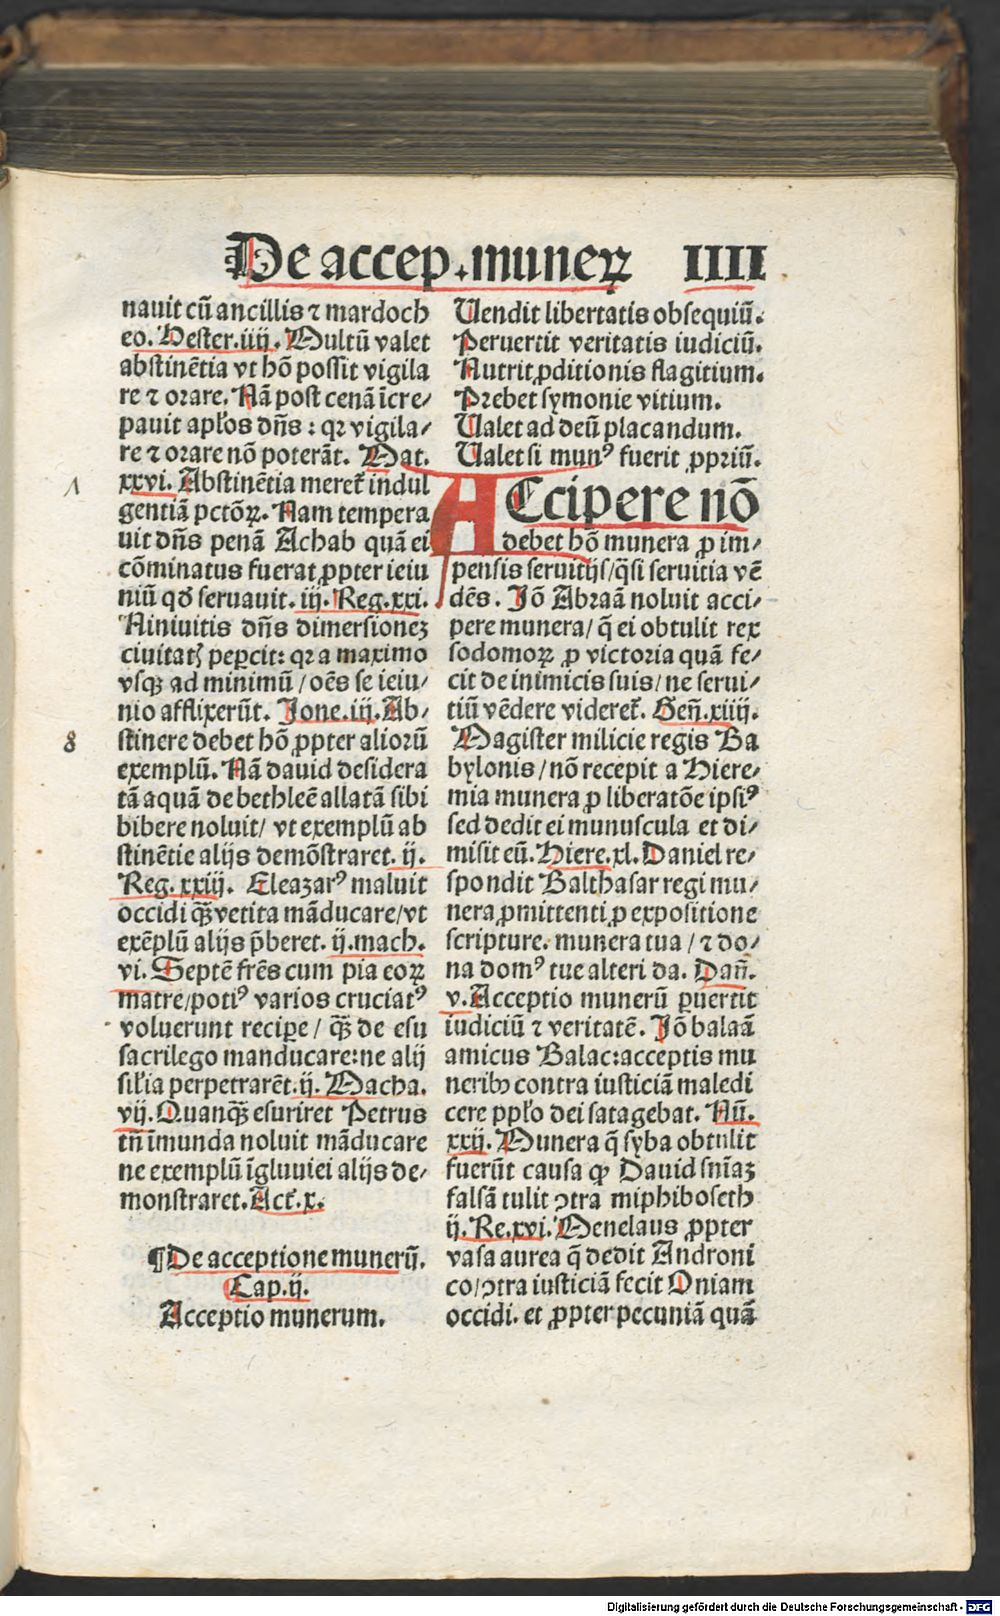 De accep. muneꝝ IIII
nauit cū ancillis ⁊ mardoch
eo. Hester.iiij. Multū valet
abstinētia vt hō possit vigila
re ⁊ orare. Nā post cenā īcre/
pauit apłos dn̄s: qꝛ vigila/
re ⁊ orare nō poterāt. Mat.
xxvi. Abstinētia meret̄ indul
gentiā pctōꝝ. Nam tempera
uit dn̄s penā Achab quā ei
cōminatus fuerat ꝓpter ieiu
niū qď seruauit. iij. Reg.xxi.
Niniuitis dn̄s dimersionez
ciuitatꝭ peꝑcit: qꝛ a maximo
vsqꝫ ad minimū / oēs se ieiu/
nio afflixerūt. Jone.iij. Ab/
stinere debet hō ꝓpter aliorū
exemplū. Nā dauid desidera
tā aquā de bethleē allatā sibi
bibere noluit / vt exemplū ab
stinētie alijs demōstraret. ij.
Reg. xxiij. Eleazarꝰ maluit
occidi qꝫ̄ vetita māducare / vt
exēplū alijs p̄beret. ij.mach.
vi. Septē frēs cum pia eoꝝ
matre / potiꝰ varios cruciatꝰ
voluerunt reciꝑe / qꝫ̄ de esu
sacrilego manducare: ne alij
siłia perpetrarēt. ij. Macha.
vij. Quanqꝫ̄ esuriret Petrus
tn̄ īmunda noluit māducare
ne exemplū īgluuiei alijs de/
monstraret. Act̄.x.
¶ De acceptione munerū.
Cap.ij.
Acceptio munerum.
Uendit libertatis obsequiū.
Peruertit veritatis iudiciū.
Nutrit ꝓditionis flagitium.
Prebet symonie vitium.
Ualet ad deū placandum.
Ualet si munꝰ fuerit ꝓpriū.
ACcipere nō
debet hō munera ꝓ im/
pensis seruitijs / q̄si seruitia vē
dēs. Jō Abraā noluit acci/
pere munera / q̄ ei obtulit rex
sodomoꝝ ꝓ victoria quā fe/
cit de inimicis suis / ne serui/
tiū vēdere videret̄. Gen̄.xiiij.
Magister milicie regis Ba
bylonis / nō recepit a Hiere/
mia munera ꝓ liberatōe ipsiꝰ
sed dedit ei munuscula et di/
misit eū. Hiere.xl. Daniel re/
spondit Balthasar regi mu/
nera ꝓmittenti ꝓ expositione
scripture. munera tua / ⁊ do/
na domꝰ tue alteri da. Dan̄.
v. Acceptio munerū ꝑuertit
iudiciū ⁊ veritatē. Jō balaā
amicus Balac: acceptis mu
neribꝰ contra iusticiā maledi
cere ppło dei satagebat. Nū.
xxij. Munera q̄ syba obtulit
fuerūt causa ꝙ Dauid sn̄iaꝫ
falsā tulit ꝯtra miphiboseth
ij. Re.xvi. Menelaus ꝓpter
vasa aurea q̄ dedit Androni
co / ꝯtra iusticiā fecit Oniam
occidi. et ꝓpter pecuniā quā
Digitalisierung gefördert durch die Deutsche Forschungsgemeinschaft - DFG